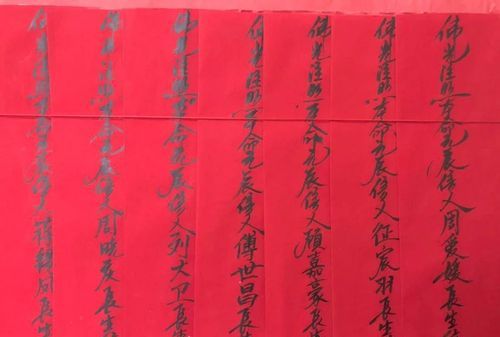 佛光注照本命元辰信人周愛媛長生
佛光注照本命元辰信人宸羽長生
佛光注照本命元辰信人顧嘉豪長生
佛光注照本命元辰信人傅世昌長生
佛光注照本命元辰信人列大卫長生
佛光注照本命元辰信人周晓長生
佛光注照本命元辰信人蒋長生